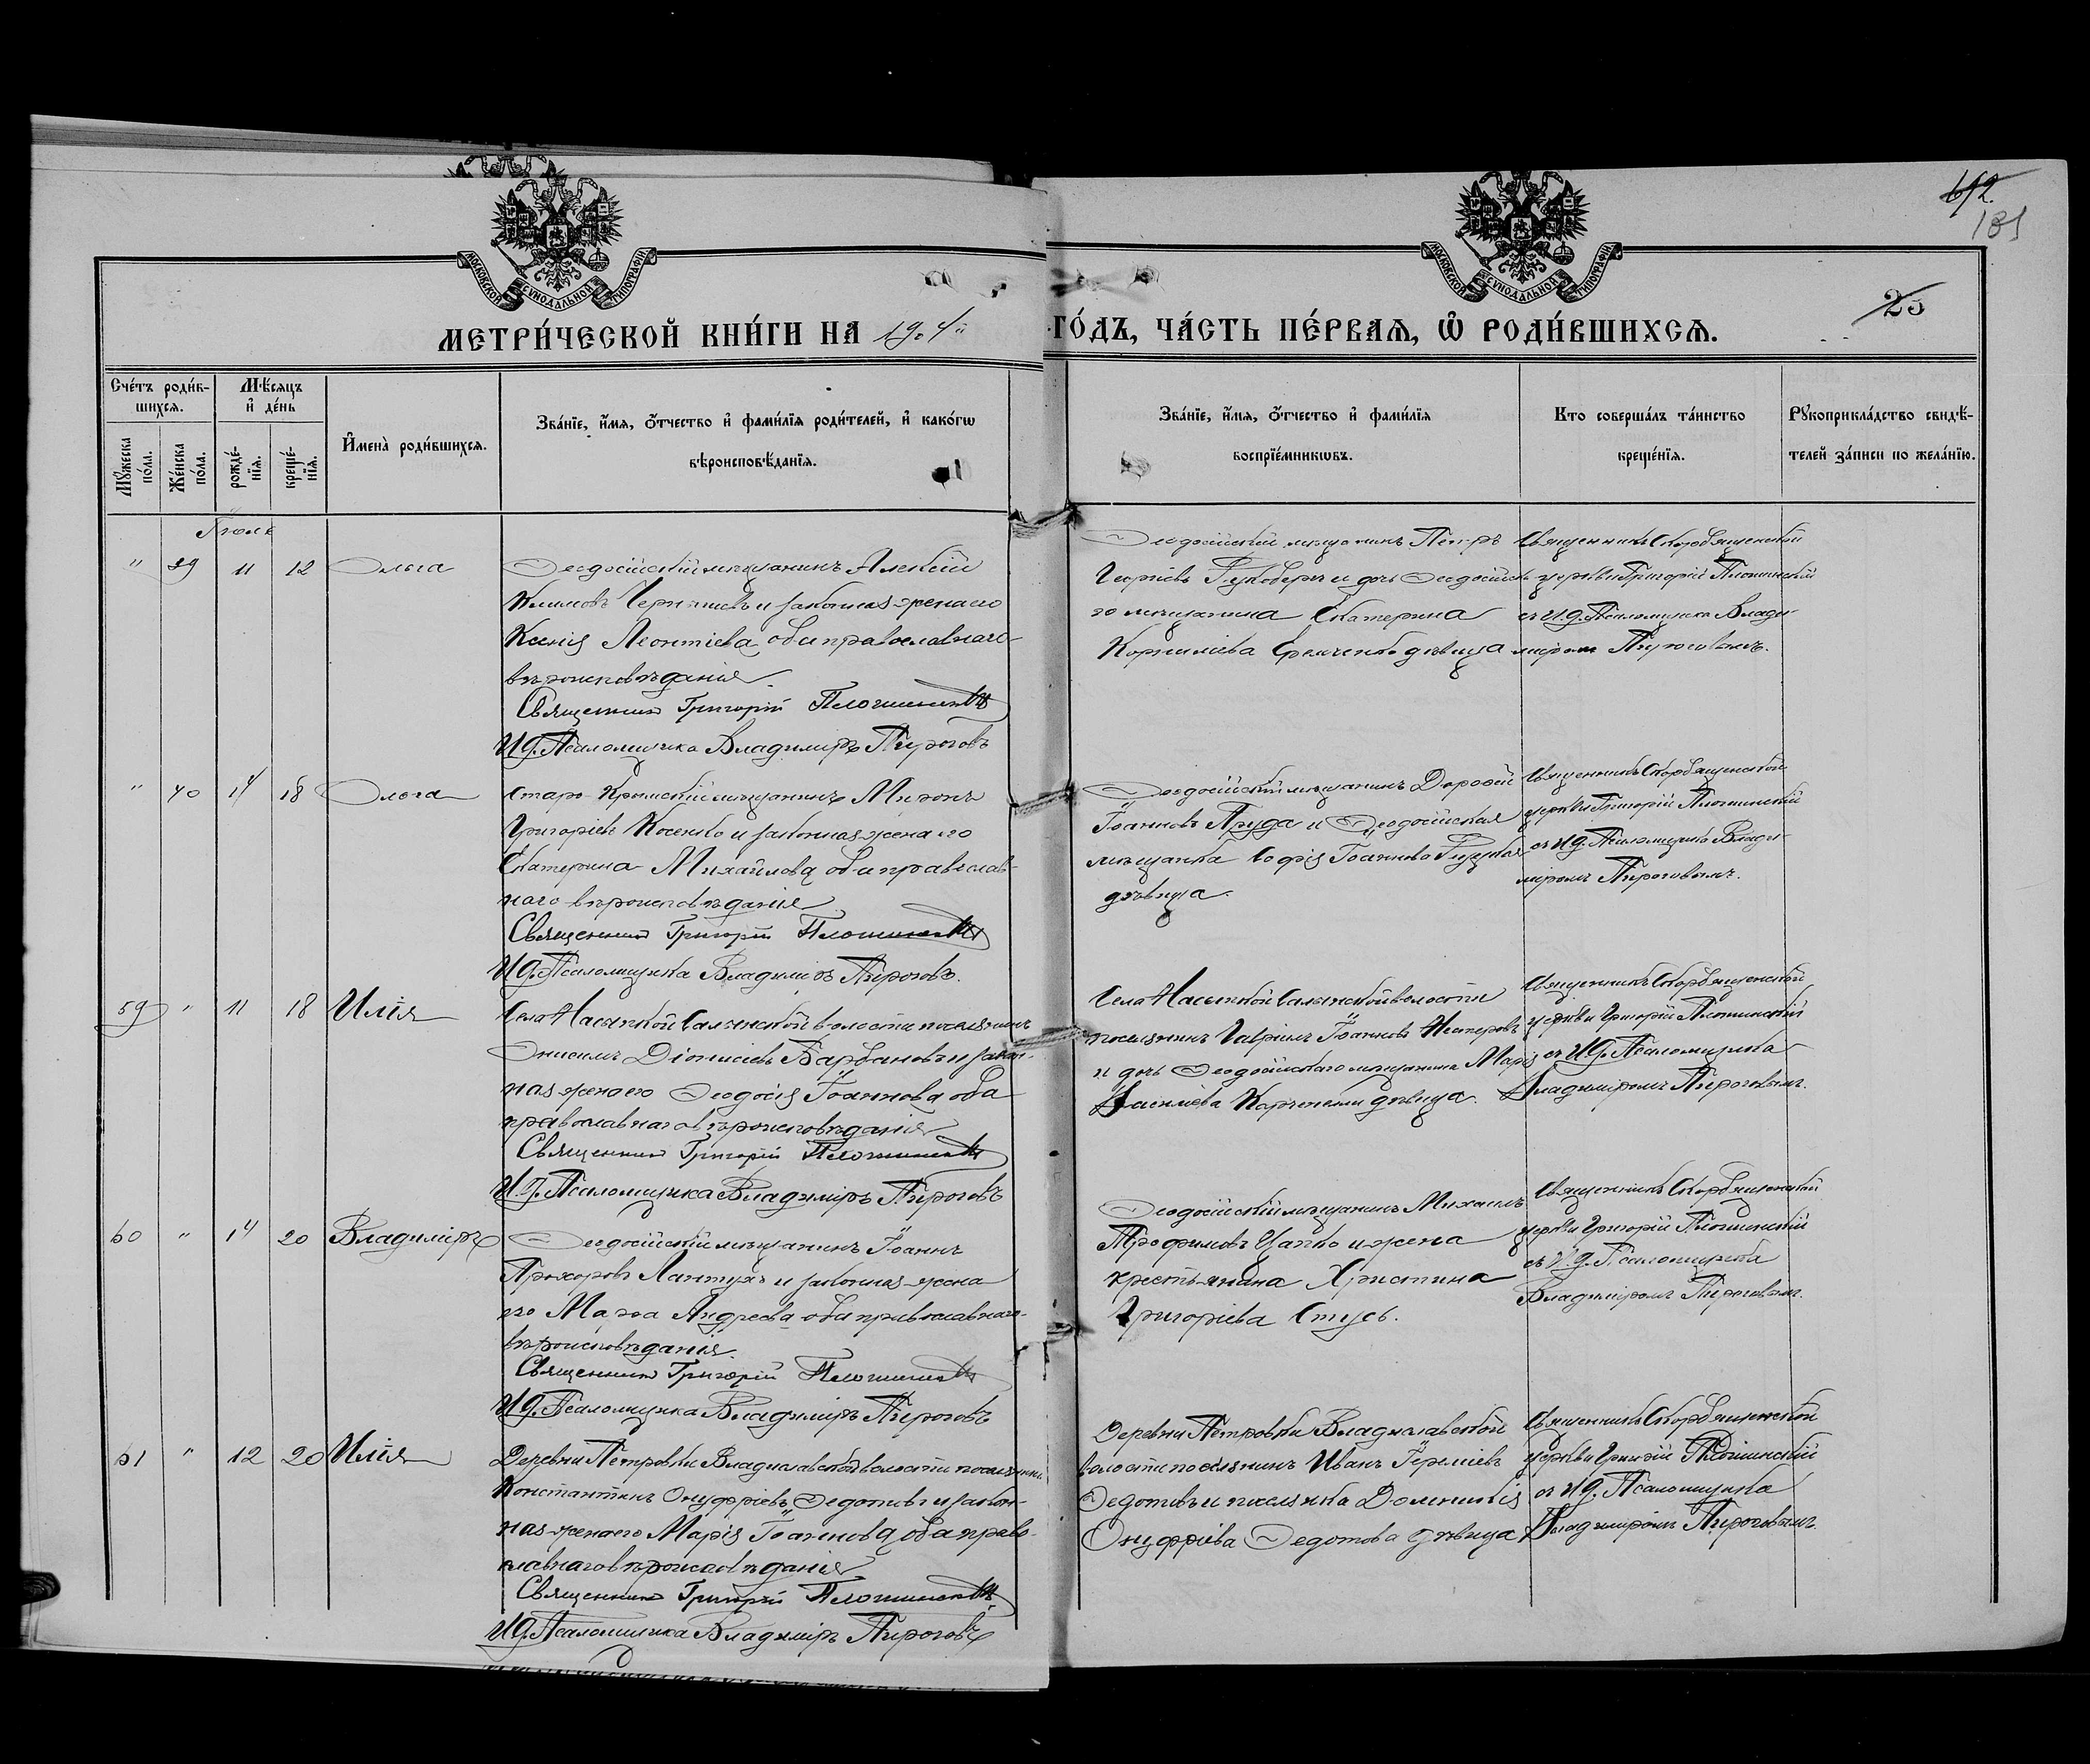 612.
181
25
МОСКОВСКОЙ СѴНОДАЛЬНОЙ ТИПОГРАФІИ
МОСКОВСКОЙ СѴНОДАЛЬНОЙ ТИПОГРАФІИ
МЕТРИ́ЧЕСКОЙ КНИ́ГИ НА 1904й ГО́ДЪ, ЧА́СТЬ ПЕ́РВАѦ, Ѡ РОДИ́ВШИХСѦ.
Сче́тъ роди́вшихсѧ.
Мѣ́сѧцъ и де́нь
Мꙋ́жеска по́ла.
Же́нска по́ла.
рожде́нїѧ.
креще́нїѧ.
Имена̀ роди́вшихсѧ.
Зва́нїе, и́мѧ, о́тчество и фами́лїѧ роди́телей, и како́гѡ
вѣроисповѣ́данїѧ.
Зва́нїе, и́мѧ, о́тчество и фами́лїѧ
воспрїе́мникѡвъ.
Кто соверша́лъ та́инство
креще́нїѧ.
Рꙋкоприкла́дство свидѣ́-
телей за́писи по жела́нїю.
Іюль
" 39 11 12 Ольга
Ѳеодосійскій мѣщанинъ Алексій
Климовъ Чернышевъ и законная жена его
Ксенія Леонтіева оба православнаго
вѣроисповѣданія
Священникъ Григорій Плошинскій
И.д. Псаломщика Владиміръ Пироговъ
Ѳеодосійскій мѣщанинъ Петръ
Георгіевъ и дочь Ѳеодосійска-
го мѣщанина Екатерина
Корниліева Еремченко дѣвица
Священникъ Скорбященской
церкви Григорій Плошинскій
съ И.д. Псаломщика Влади-
міромъ Пироговымъ.
" 40 14 18 Ольга
Старо-Крымскій мѣщанинъ Миронъ
Григорьевъ Косенко и законная жена его
Екатерина Михайлова оба православ-
наго вѣроисповѣданія
Священникъ Григорій Плошинскій
И.д. Псаломщика Владиміръ Пироговъ.
Ѳеодосійскій мѣщанинъ Дороѳей
Іоанновъ Пруда и Ѳеодосійская
мѣщанка Софія Іоаннова
дѣвица.
Священникъ Скорбященской
церкви Григорій Плошинскій
съ И.д. Псаломщика Влади-
міромъ Пироговымъ.
59 " 11 18 Илія
Села Насыпкой Салынской волости поселянинъ
Онисимъ Діонисіевъ Барбановъ и закон-
ная жена его Ѳеодосія Іоаннова оба
православнаго вѣроисповѣданія
Священникъ Григорій Плошинскій
И.д. Псаломщика Владиміръ Пироговъ
Села Насыпкой Салынской волости
поселянинъ Гавріилъ Іоанновъ Нестеровъ
и дочь Ѳеодосійскаго мѣщанина Марія
Василіева дѣвица.
Священникъ Скорбященской
церкви Григорій Плошинскій
съ И.д. Псаломщика
Владиміромъ Пироговымъ.
60 " 14 20 Владиміръ
Ѳеодосійскій мѣщанинъ Іоаннъ
Прохоровъ Лантухъ и законная жена
его Марѳа Андреева оба православнаго
вѣроисповѣданія.
Священникъ Григорій Плошинскій
И.д. Псаломщика Владиміръ Пироговъ
Ѳеодосійскій мѣщанинъ Михаилъ
Трофимовъ Цапко и жена
крестьянина Христина
Григоріева Стусь.
Священникъ Скорбященской
церкви Григорій Плошинскій
съ И.д. Псаломщика
Владиміромъ Пироговымъ.
61 " 12 20 Илія
Деревни Петровки Владиславской волости поселянинъ
Константинъ Онуфріевъ Ѳедотовъ и закон-
ная жена его Марія Іоаннова оба право-
славнаго вѣроисповѣданія
Священникъ Григорій Плошинскій
И.д. Псаломщика Владиміръ Пироговъ
Деревни Петровки Владиславской
волости поселянинъ Иванъ Іереміевъ
Ѳедотовъ и поселянка Домникія
Онуфріева Ѳедотова дѣвица
Священникъ Скорбященской
церкви Григорій Плошинскій
съ И.д. Псаломщика
Владиміромъ Пироговымъ.